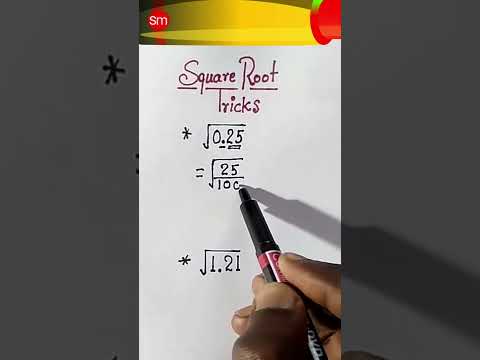 Sm
Square Root
Tricks
* √0.25
= √25/100
* √1.21